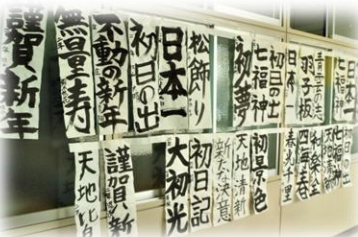 謹賀新年
無量寿
不動の新年
初日の出
日本一
松飾り
初夢
七福神
初日の出
日本一
羽子板
天地
謹賀新
大初光
初日記
新たな決意
天地清新
初景色
春光千里
四海春
和楽